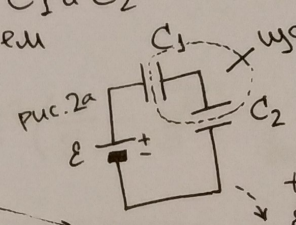 C₁ и C₂
ем
C₁
рис. 2а
C₂
ε
+
-
+